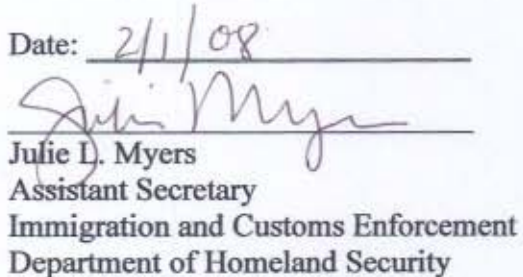 Date: 2/1/08
Julie Myers
Julie L. Myers
Assistant Secretary
Immigration and Customs Enforcement
Department of Homeland Security